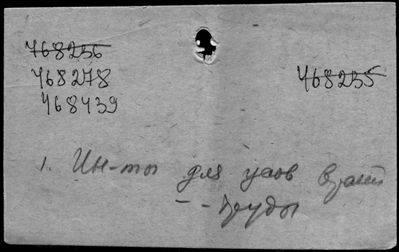 468256
468278
468439
468235
1. Ин-ты для усов. врачей
-- Труды